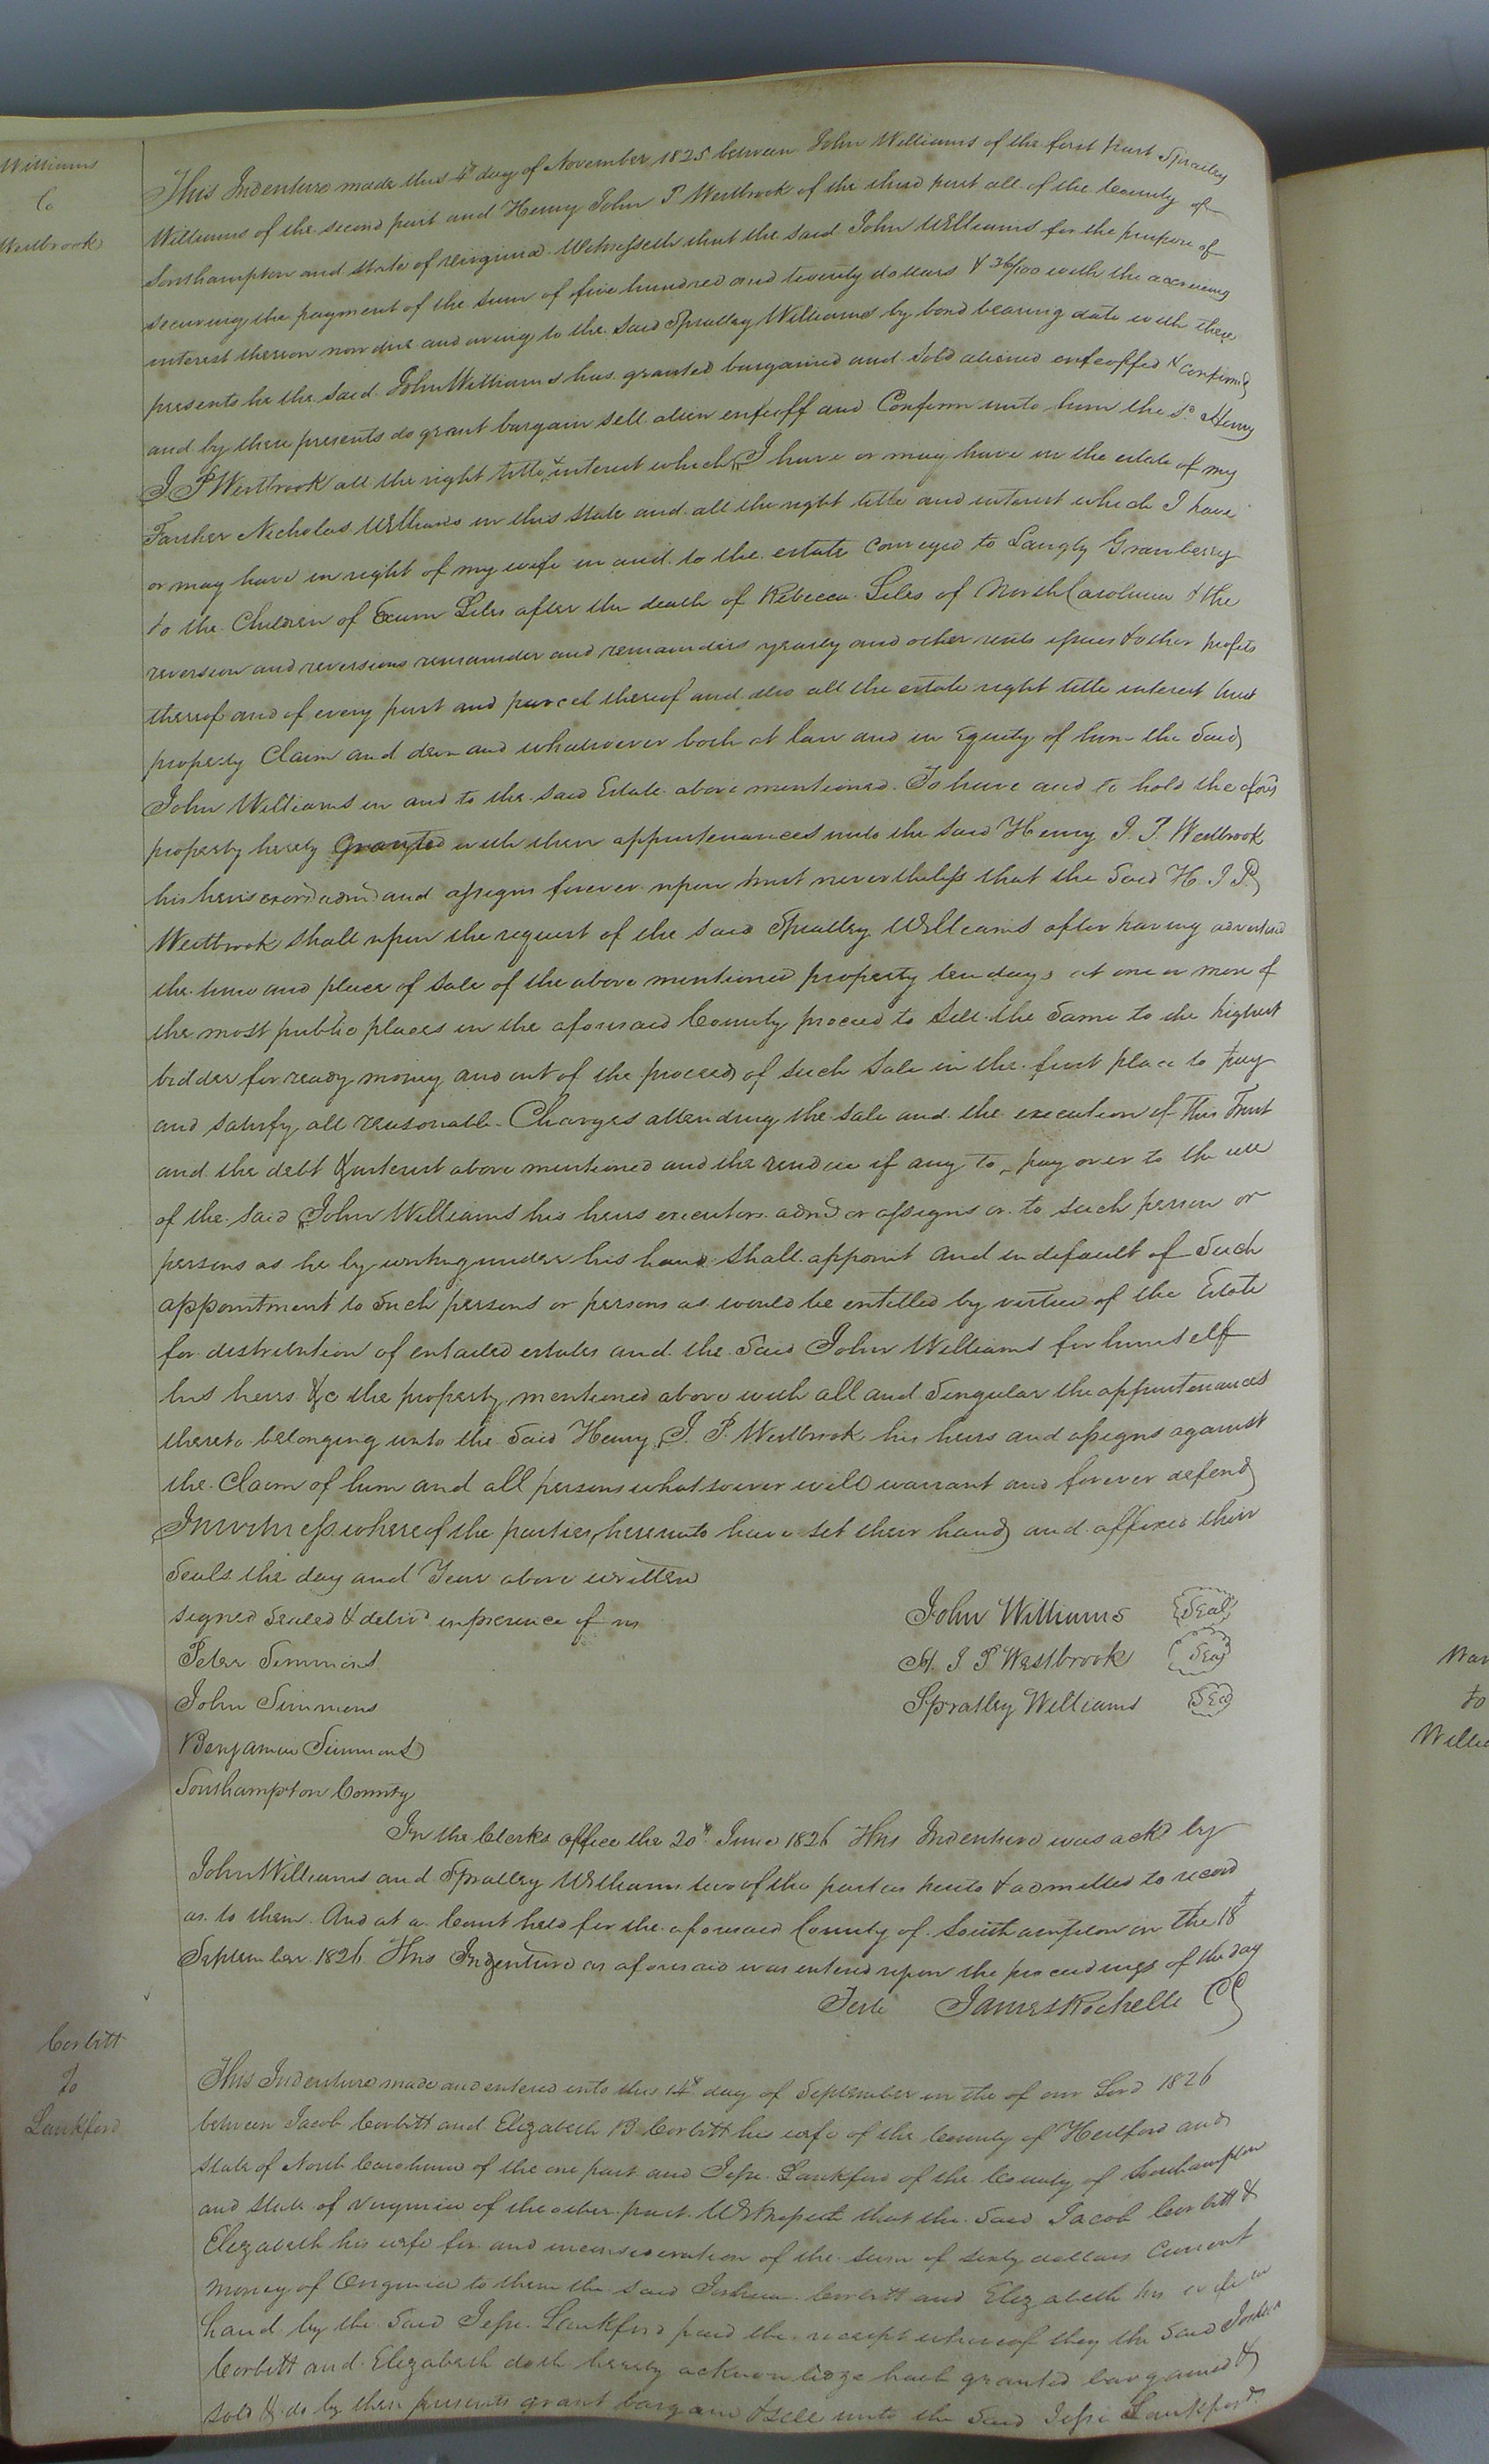 Williams
To
Westbrook
This Indenture made this 4th day of November 1825 between John Williams of the first part Spratley
Williams of the second part and Henry John P Westbrook of the third part all of the County of
Southampton and State of Virginia Witnesseth that the said John Williams for the purpose of
securing the payment of the sum of five hundred and twenty dollars & 36/100 with the accruing
interest thereon now due and owing to the said Spratley Williams by bond bearing date with these
presents he the said John Williams has granted bargained and sold aliened enfeoffed & confirmd
and by these presents do grant bargain sell alien enfeoff and Confirm unto him the sd Henry
J P Westbrook all the right title & interest which I have or may have in the estate of my
Farther Nicholas Williams in this State and all the right title and interest which I have
or may have in right of my wife in and to the estate conveyed to Langly Granberry
to the Children of Exum Liles after the death of Rebecca Liles of North Carolina & the
reversion and reversions remainder and remainders yearly and other rents issues & other profits
thereof and of every part and parcel thereof and also all the estate right title interest trust
property Claim and demand whatsoever both at law and in Equity of him the Said
John Williams in and to the said Estate above mentioned. To have and to hold the afors
property hereby granted with their appurtenances unto the said Henry J. P. Westbrook
his heirs exors admd and assigns forever upon trust nevertheless that the Said H. J P
Westbrook shall upon the request of the said Spratley Williams after having advertised
the time and place of sale of the above mentioned property ten days at one or more of
the most public places in the aforesaid County proceed to sell the Same to the highest
bidder for ready money and out of the proceeds of such sale in the first place to pay
and satisfy all reasonable Charges attending the sale and the execution of this Trust
and the debt & interest above mentioned and the residue if any to pay over to the use
of the said John Williams his heirs executors admd or assigns or to such person or
persons as he by writing under his hand shall appoint and in default of Such
appointment to Such persons or persons as would be entitled by virtue of the Estate
for distribution of entailed estates and the Said John Williams for himself
his heirs &c the property mentioned above with all and Singular the appurtenances
thereto belonging unto the Said Henry J. P. Westbrook his heirs and assigns against
the Claim of him and all persons whatsoever will warrant and forever defend
In witness whereof the parties hereunto have set their hand and affixed their
Seals the day and Year above written
signed Sealed & delivd in presence of us
John Williams Seal
Peter Simmons
H. J P Westbrook Seal
John Simmons
Spratley Williams Seal
Benjamin Simmons
Southampton County
In the Clerks office the 20th June 1826 This Indenture was ackd by
John Williams and Spratley Williams two of the parties hereto & admitted to record
as to them. And at a Court held for the aforesaid County of Southampton on the 18th
September 1826 This Indenture as aforesaid was entered upon the proceedings of the day
Teste James Rochelle CC
Corbitt
To
Lankford
This Indenture made and entered into this 14th day of September in the of our Lord 1826
between Jacob Corbitt and Elizabeth B Corbitt his wife of the County of Hertford and
State of North Carolina of the one part and Jesse Lankford of the County of Southampton
and State of Virginia of the other part Witnesseth that the Said Jacob Corbitt &
Elizabeth his wife for and in consideration of the sum of sixty dollars Current
money of Virginia to them the said Joshua Corbitt and Elizabeth his wife in
hand by the Said Jesse Lankford paid the receipt whereof they the Said Joshua
Corbitt and Elizabeth doth hereby acknowledge hath granted bargained &
sold & do by these presents grant bargain & sell unto the Said Jesse Lankford
to